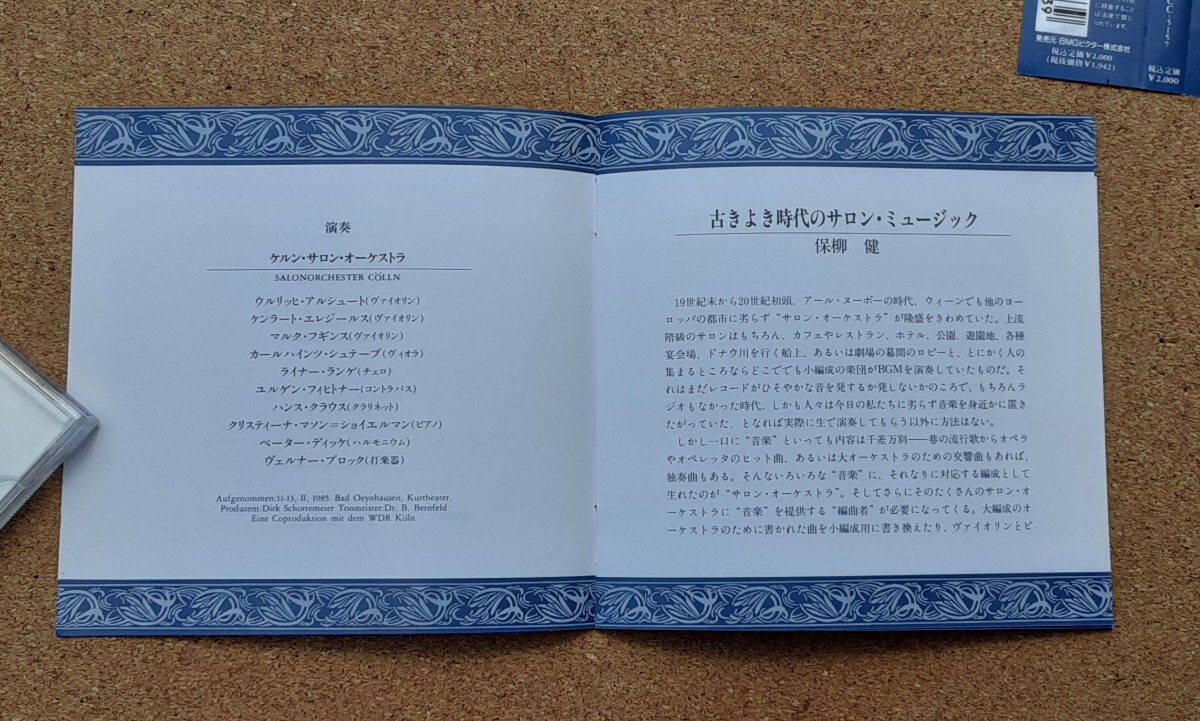 に録音すること
は法律で禁じ
られています。
39
発売元・BMGビクター株式会社
税込定価¥2,000
(税抜価格¥1,942)
CC-5157
税込定価
¥2,000
演奏
ケルン・サロン・オーケストラ
SALONORCHESTER CÖLLN
ウルリッヒ・アルシュート(ヴァイオリン)
ケンラート・エレジールス(ヴァイオリン)
マルク・フギンス(ヴァイオリン)
カールハインツ・シュテープ(ヴィオラ)
ライナー・ランゲ(チェロ)
ユルゲン・フィヒトナー(コントラバス)
ハンス・クラウス(クラリネット)
クリスティーナ・マソン=ショイエルマン(ピアノ)
ペーター・ディッケ(ハルモニウム)
ヴェルナー・ブロック(打楽器)
Aufgenommen:11-13, II, 1985. Bad Oeynhausen, Kurtheater.
Produzent:Dirk Schortemeier Tonmeister:Dr. B. Bernfeld
Eine Coproduktion mit dem WDR Köln
古きよき時代のサロン・ミュージック
保柳 健
19世紀末から20世紀初頭、アール・ヌーボーの時代、ウィーンでも他のヨー
ロッパの都市に劣らず“サロン・オーケストラ”が隆盛をきわめていた。上流
階級のサロンはもちろん、カフェやレストラン、ホテル、公園、遊園地、各種
宴会場、ドナウ川を行く船上、あるいは劇場の幕間のロビーと、とにかく人の
集まるところならどこででも小編成の楽団がBGMを演奏していたものだ。そ
れはまだレコードがひそやかな音を発するか発しないかのころで、もちろんラ
ジオもなかった時代、しかも人々は今日の私たちに劣らず音楽を身近かに置き
たがっていた、となれば実際に生で演奏してもらう以外に方法はない。
しかし一口に“音楽”といっても内容は千差万別――巷の流行歌からオペラ
やオペレッタのヒット曲、あるいは大オーケストラのための交響曲もあれば、
独奏曲もある。そんないろいろな“音楽”に、それなりに対応する編成として
生れたのが“サロン・オーケストラ”。そしてさらにそのたくさんのサロン・オ
ーケストラに“音楽”を提供する“編曲者”が必要になってくる。大編成のオ
ーケストラのために書かれた曲を小編成用に書き換えたり、ヴァイオリンとピ